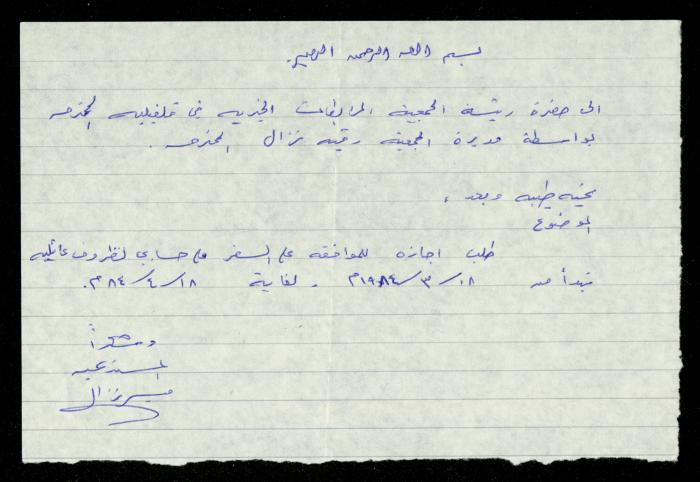 بسم الله الرحمن الرحيم
الى حضرة رئيسة الجمعية المرابطات الخيريه في قلقيليه المحترمه
بواسطة مديرة الجمعية رقيه نزال المحترمه .
تحيه طيبه وبعد ،
الموضوع
طلب اجازه للموافقه على السفر على حسابي لظروف عائليه
تبدأ من ١٨/٣/١٩٨٤م ولغاية ١٨/٤/٨٤م.
وشكراً
المستدعيه
نزال